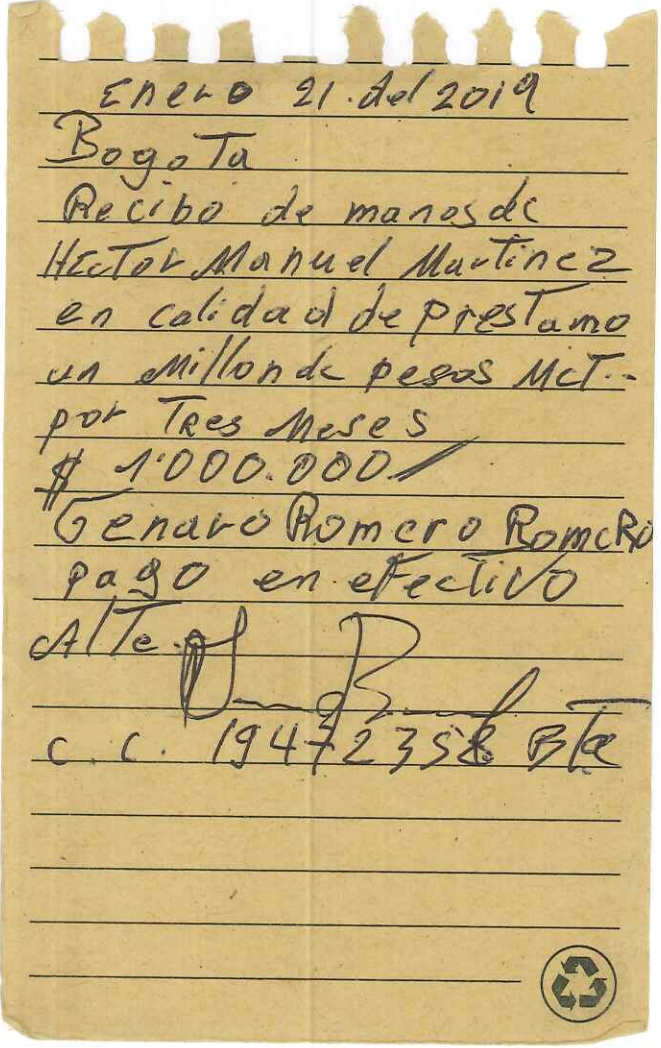 Enero 21. del 2019
Bogota
Recibo de manos de
Hector Manuel Martinez
en calidad de prestamo
un Millon de pesos McT..
por Tres Meses
$ 1'000.000
Genaro Romero Romero
pago en efectivo
AtTe.
c.c. 19472358 Bta